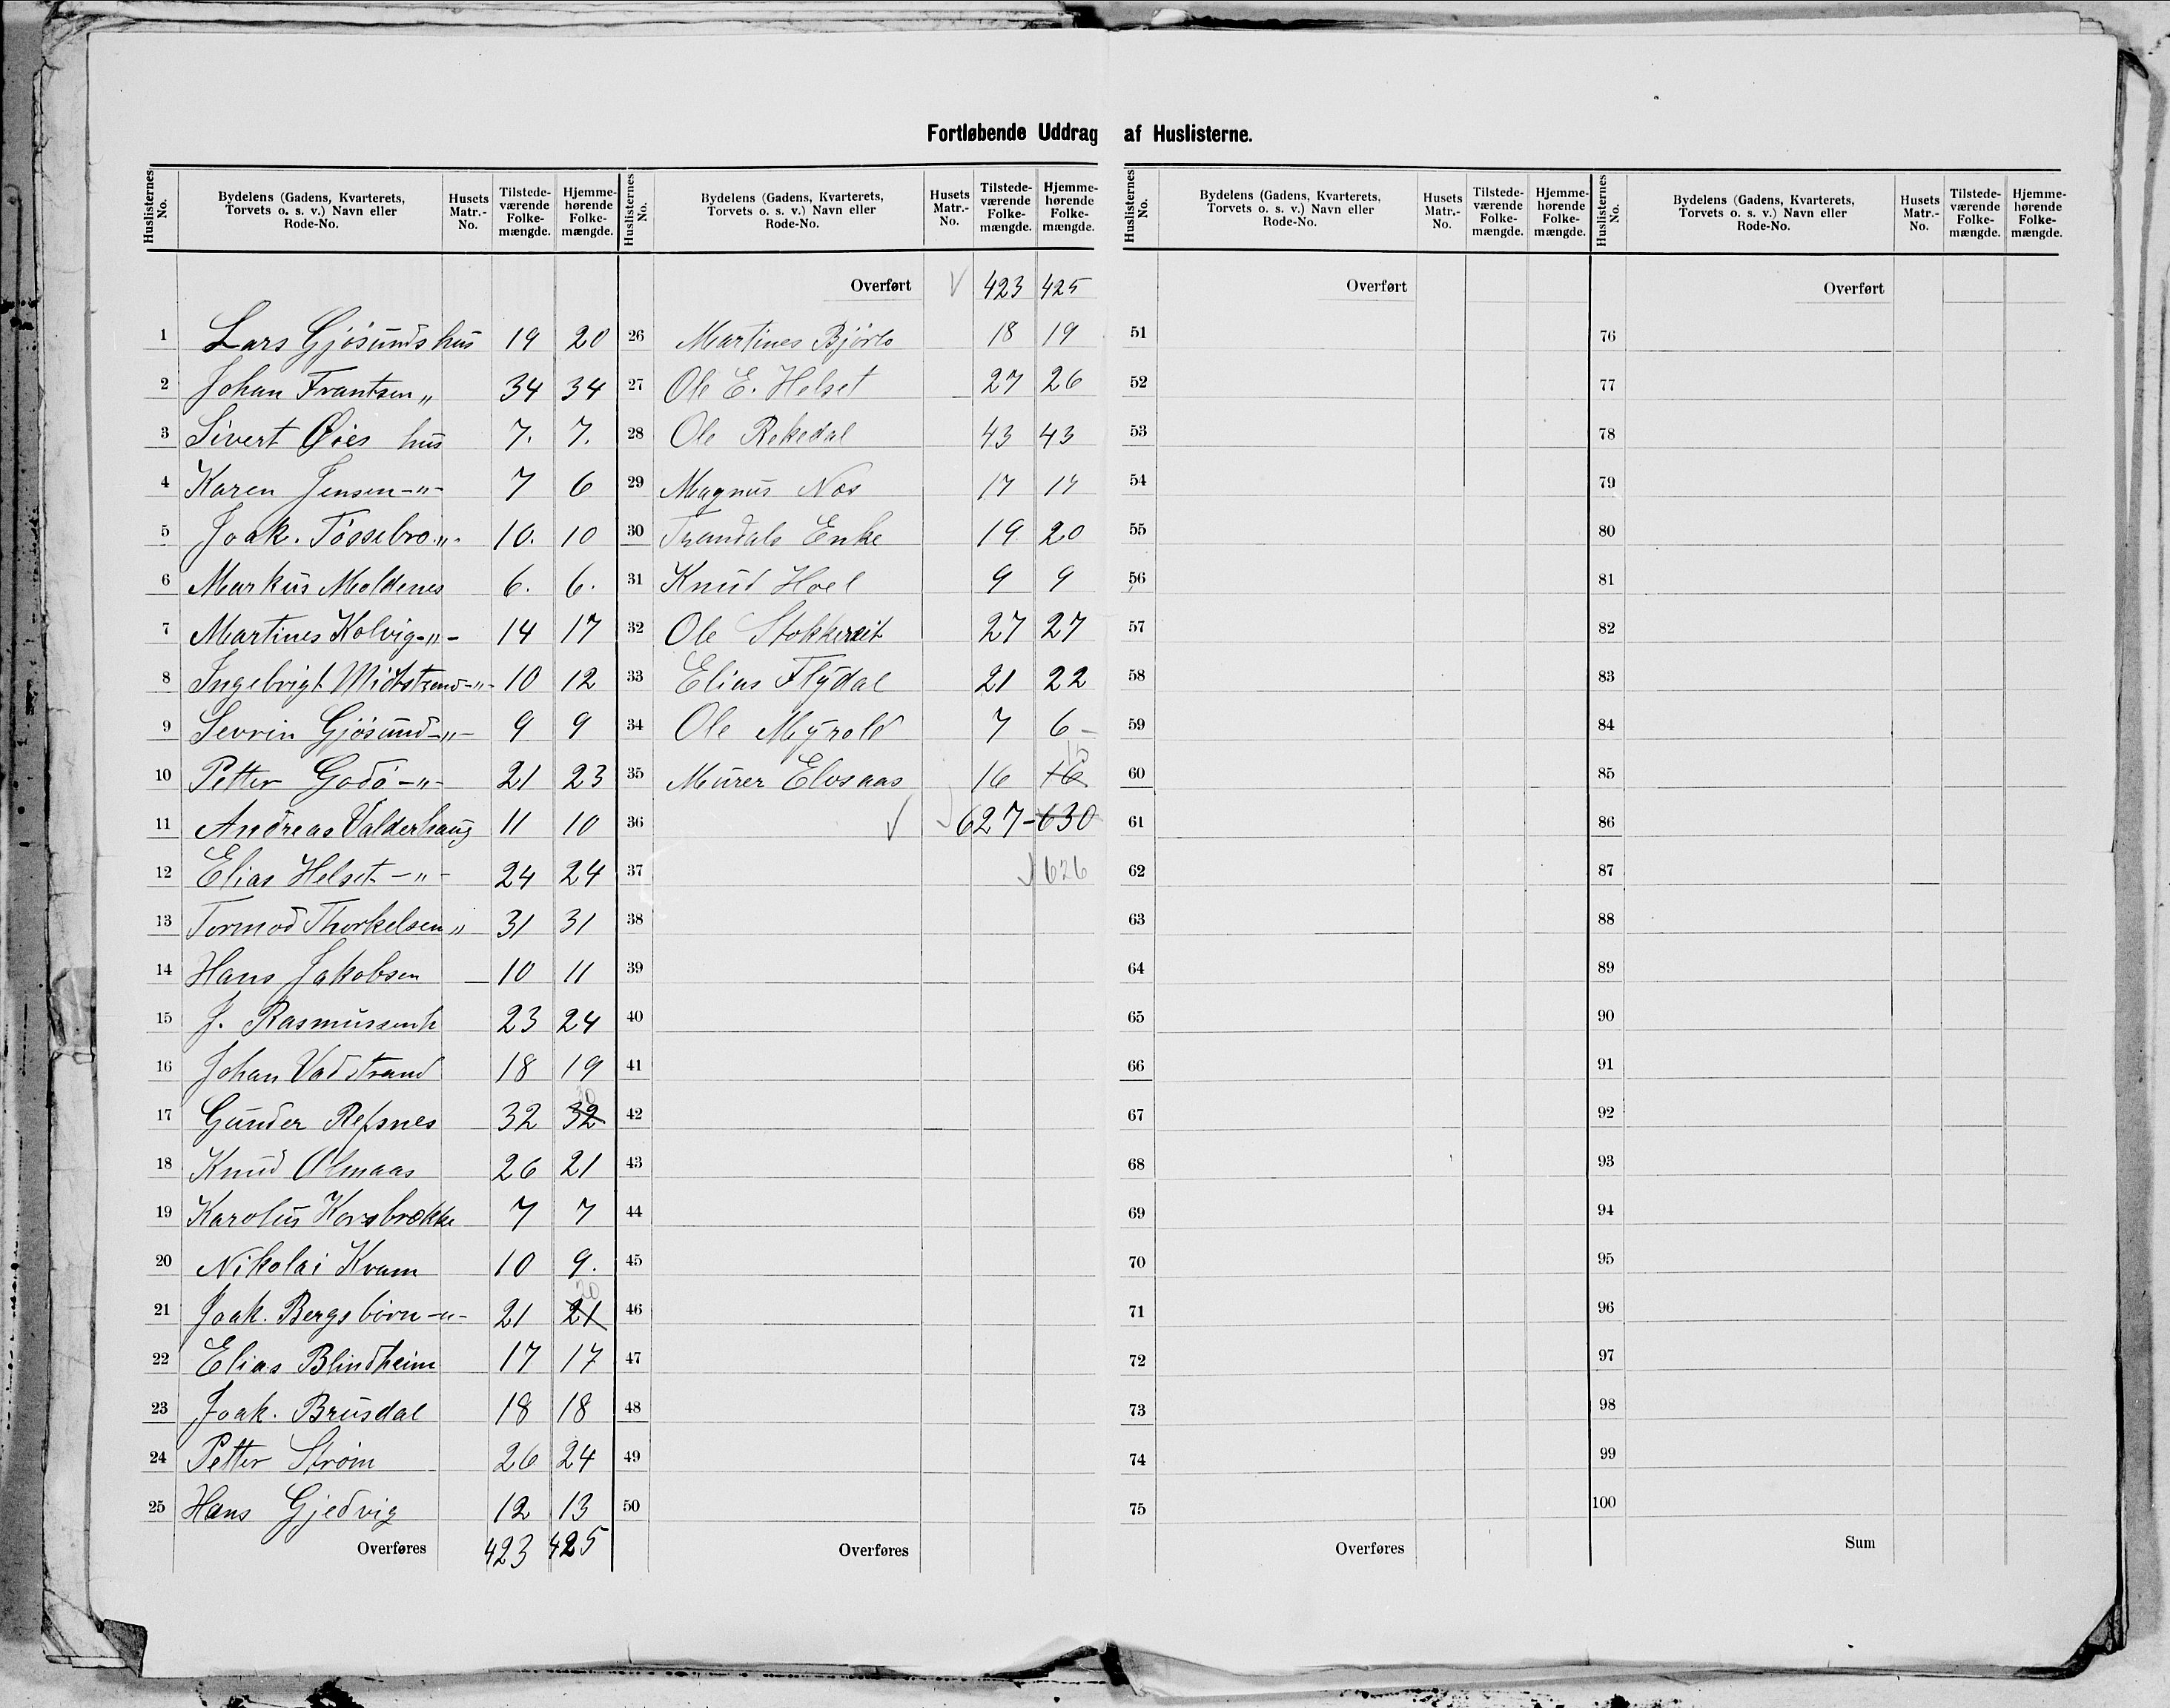 Fortløbende Uddrag af Huslisterne.
Huslisternes No. | Bydelens (Gadens, Kvarterets, Torvets o. s. v.) Navn eller Rode-No. | Husets Matr.-No. | Tilstedeværende Folkemængde. | Hjemmehørende Folkemængde.
1 Lars Gjøsunds hus 19 20
2 Johan Frantsen „ 34 34
3 Sivert Øies hus 7. 7.
4 Karen Jensen -„- 7 6
5 Joak. Tøssebro -„- 10. 10
6 Markus Moldenes 6. 6.
7 Martines Kolvig -„- 14 17
8 Ingebrigt Midtstrand -„- 10 12
9 Sevrin Gjøsund -„- 9 9
10 Petter Godø -„- 21 23
11 Andreas Valderhaug 11 10
12 Elias Helset -„- 24 24
13 Tormod Thorkelsen „ 31 31
14 Hans Jakobsen 10 11
15 J. Rasmussen h 23 24
16 Johan Vadstrand 18 19
17 Gunder Refsnes 32 32 30
18 Knud Olmaas 26 21
19 Karolus Korsbrække 7 7
20 Nikolai Kvam 10 9.
21 Joak. Bergsbørn -„- 21 21 20
22 Elias Blindheim 17 17
23 Joak. Brusdal 18 18
24 Petter Strøm 26 24
25 Hans Gjedvig 12 13
Overføres 423 425
Huslisternes No. | Bydelens (Gadens, Kvarterets, Torvets o. s. v.) Navn eller Rode-No. | Husets Matr.-No. | Tilstedeværende Folkemængde. | Hjemmehørende Folkemængde.
Overført 423 425
26 Martines Bjørlo 18 19
27 Ole E. Helset 27 26
28 Ole Rekedal 43 43
29 Magnus Nos 17 17
30 Trandals Enke 19 20
31 Knud Hoel 9 9
32 Ole Stokkereit 27 27
33 Elias Flydal 21 22
34 Ole Myrold 7 6 -
35 Murer Elvsaas 16 16 15
36 627 - 630
37 626
38
39
40
41
42
43
44
45
46
47
48
49
50
Overføres
Huslisternes No. | Bydelens (Gadens, Kvarterets, Torvets o. s. v.) Navn eller Rode-No. | Husets Matr.-No. | Tilstedeværende Folkemængde. | Hjemmehørende Folkemængde.
Overført
51
52
53
54
55
56
57
58
59
60
61
62
63
64
65
66
67
68
69
70
71
72
73
74
75
Overføres
Huslisternes No. | Bydelens (Gadens, Kvarterets, Torvets o. s. v.) Navn eller Rode-No. | Husets Matr.-No. | Tilstedeværende Folkemængde. | Hjemmehørende Folkemængde.
Overført
76
77
78
79
80
81
82
83
84
85
86
87
88
89
90
91
92
93
94
95
96
97
98
99
100
Sum